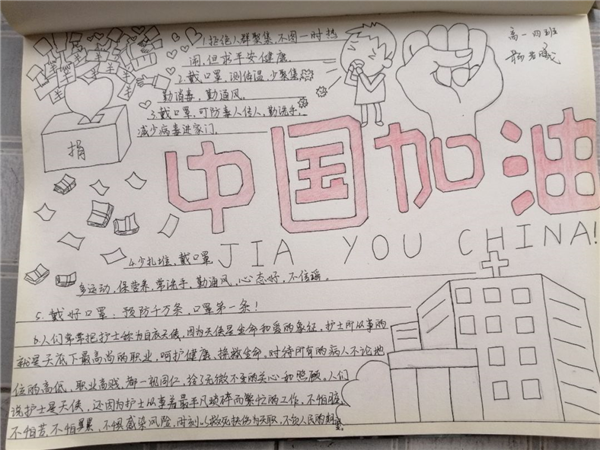 1.拒绝人群聚集,不图一时热
闹,但求平安健康。
2.戴口罩,测体温,少聚集,
勤消毒,勤通风。
3.戴口罩,可防毒人传人,勤洗手,
减少病毒进家门。
高一四班
捐
中国加油
JIA YOU CHINA!
4.少扎堆,戴口罩,
多运动,保营养,常洗手,勤通风,心态好,不信谣。
5.戴好口罩:预防千万条,口罩第一条!
6.人们常常把护士称为白衣天使,因为天使是生命和爱的象征,护士所从事的
就是天底下最高尚的职业,呵护健康,拯救生命。对待所有的病人不论地
位的高低、职业高贱,都一视同仁,给了无微不至的关心和照顾。人们
说护士是天使,还因为护士从事着最平凡琐碎而繁忙的工作,不怕脏
不怕苦,不怕累,不惧感染风险,时刻以救死扶伤为天职,不负人民的期望